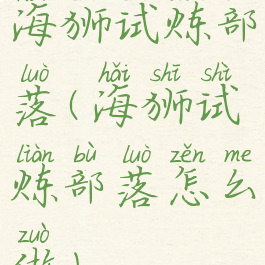 海狮试炼部
luò hǎi shī shì
落(海狮试
liàn bù luò zěn me
炼部落怎么
zuò
做)